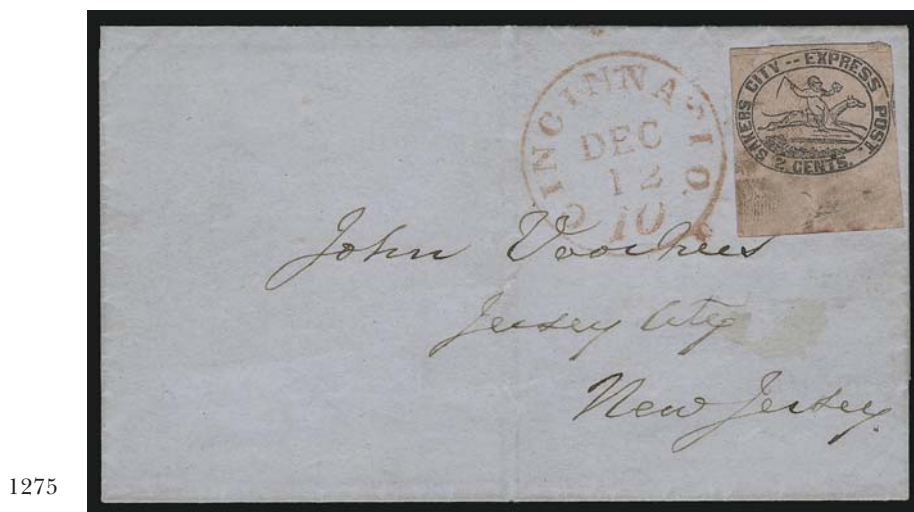 CINCINNATI O.
DEC
12
10
BAKERS CITY -- EXPRESS POST.
2 CENTS.
John Voorhees
Jersey City
New Jersey.
1275